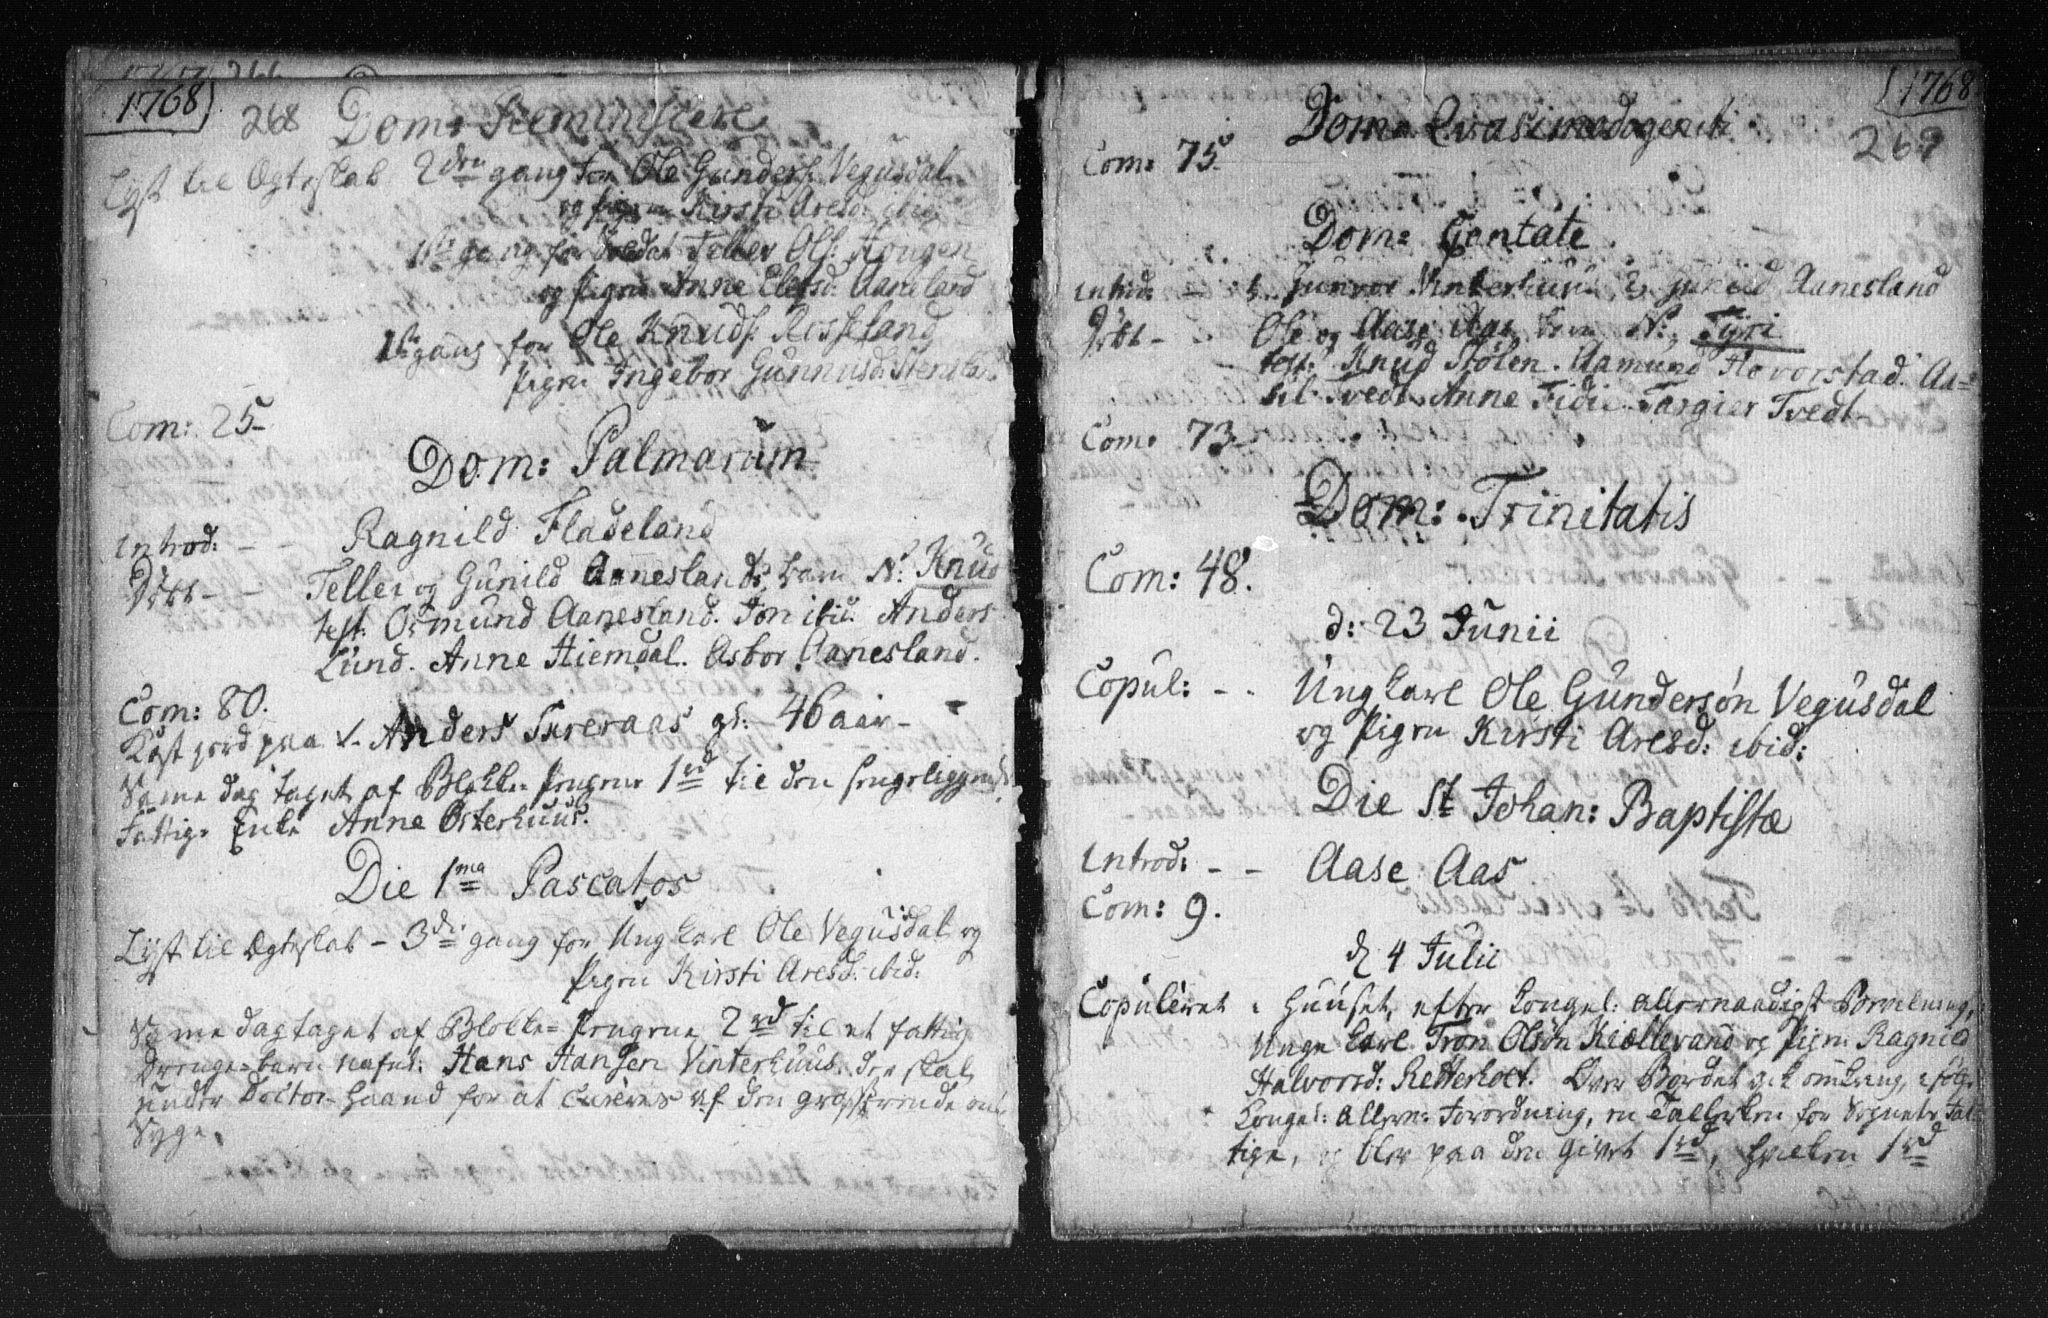 1768
268
Dom: Reminiscere
Lyst til Ægteskab 2den gang for Ole Gunders: Vegusdal
og pigen Kirsti Aresd: ibid
1ste gang for Soldat Tellev Ols: Hougen
og pigen Anne Elefsd: Aanesland
1ste gang for Ole Knuds: Risseland
pigen Ingebor Gunnusd:
Com: 25-
Dom: Palmarum
Introd: - - Ragnild Fladeland
Döbt - - Tellev og Gunild Aaneslands barn N: Knud
test: Osmund Aanesland. Jon ibid. Anders
Lund. Anne Hiemdal. Asbor Aanesland.
Com: 80.
Kast jord paa Anders Skreraas gl: 46 aar-
Samme dag taget af Blokke-Pengene 1 rd til den sengeliggende
Fattige Enke Anne Osterhuus.
Die 1ma Pascatos
Lyst til Ægteskab - 3die gang for Ung karl Ole Vegusdal og
Pigen Kirsti Aresd: ibid:
Samme dag taget af Blokke-Pengene 2 rd til et fattig
Drenge-barn nafnl: Hans Hansen Vinterhuus, der skal
under Doctor-Haand for at cureres af den grasserende
Syge.
1768
269
Dom: Qvasimodogeniti
Com: 75.
Dom: Cantate
Introd: - Gunvor Vinterhuus Gunild Aanesland
Döbt - - Ole og Aase Aas barn N: Tyri
test: Knud Stölen. Aamund Hovorstad. Aa=
sil Tvedt. Anne Fidie. Targier Tvedt
Com: 73-
Dom: Trinitatis
Com: 48.
d: 23 Junii
Copul: - - Ung karl Ole Gundersøn Vegusdal
og Pigen Kirsti Aresd: ibid:
Die St Johan: Baptistæ
Introd: - - Aase Aas
Com: 9.
d 4 Julii
Copuleret i Huuset, efter kongel: allernaadigst Bevilning,
Unge karl Tron Olsön Kiøllevand og Pigen Ragnild
Halvorsd: Retterholt. Over Bordet gik omkring, efölge
kongel: allern: Forordning, en Tallerken for Sognets Fat=
tige, og blev paa den givet 1 rd, hvilken 1 rd